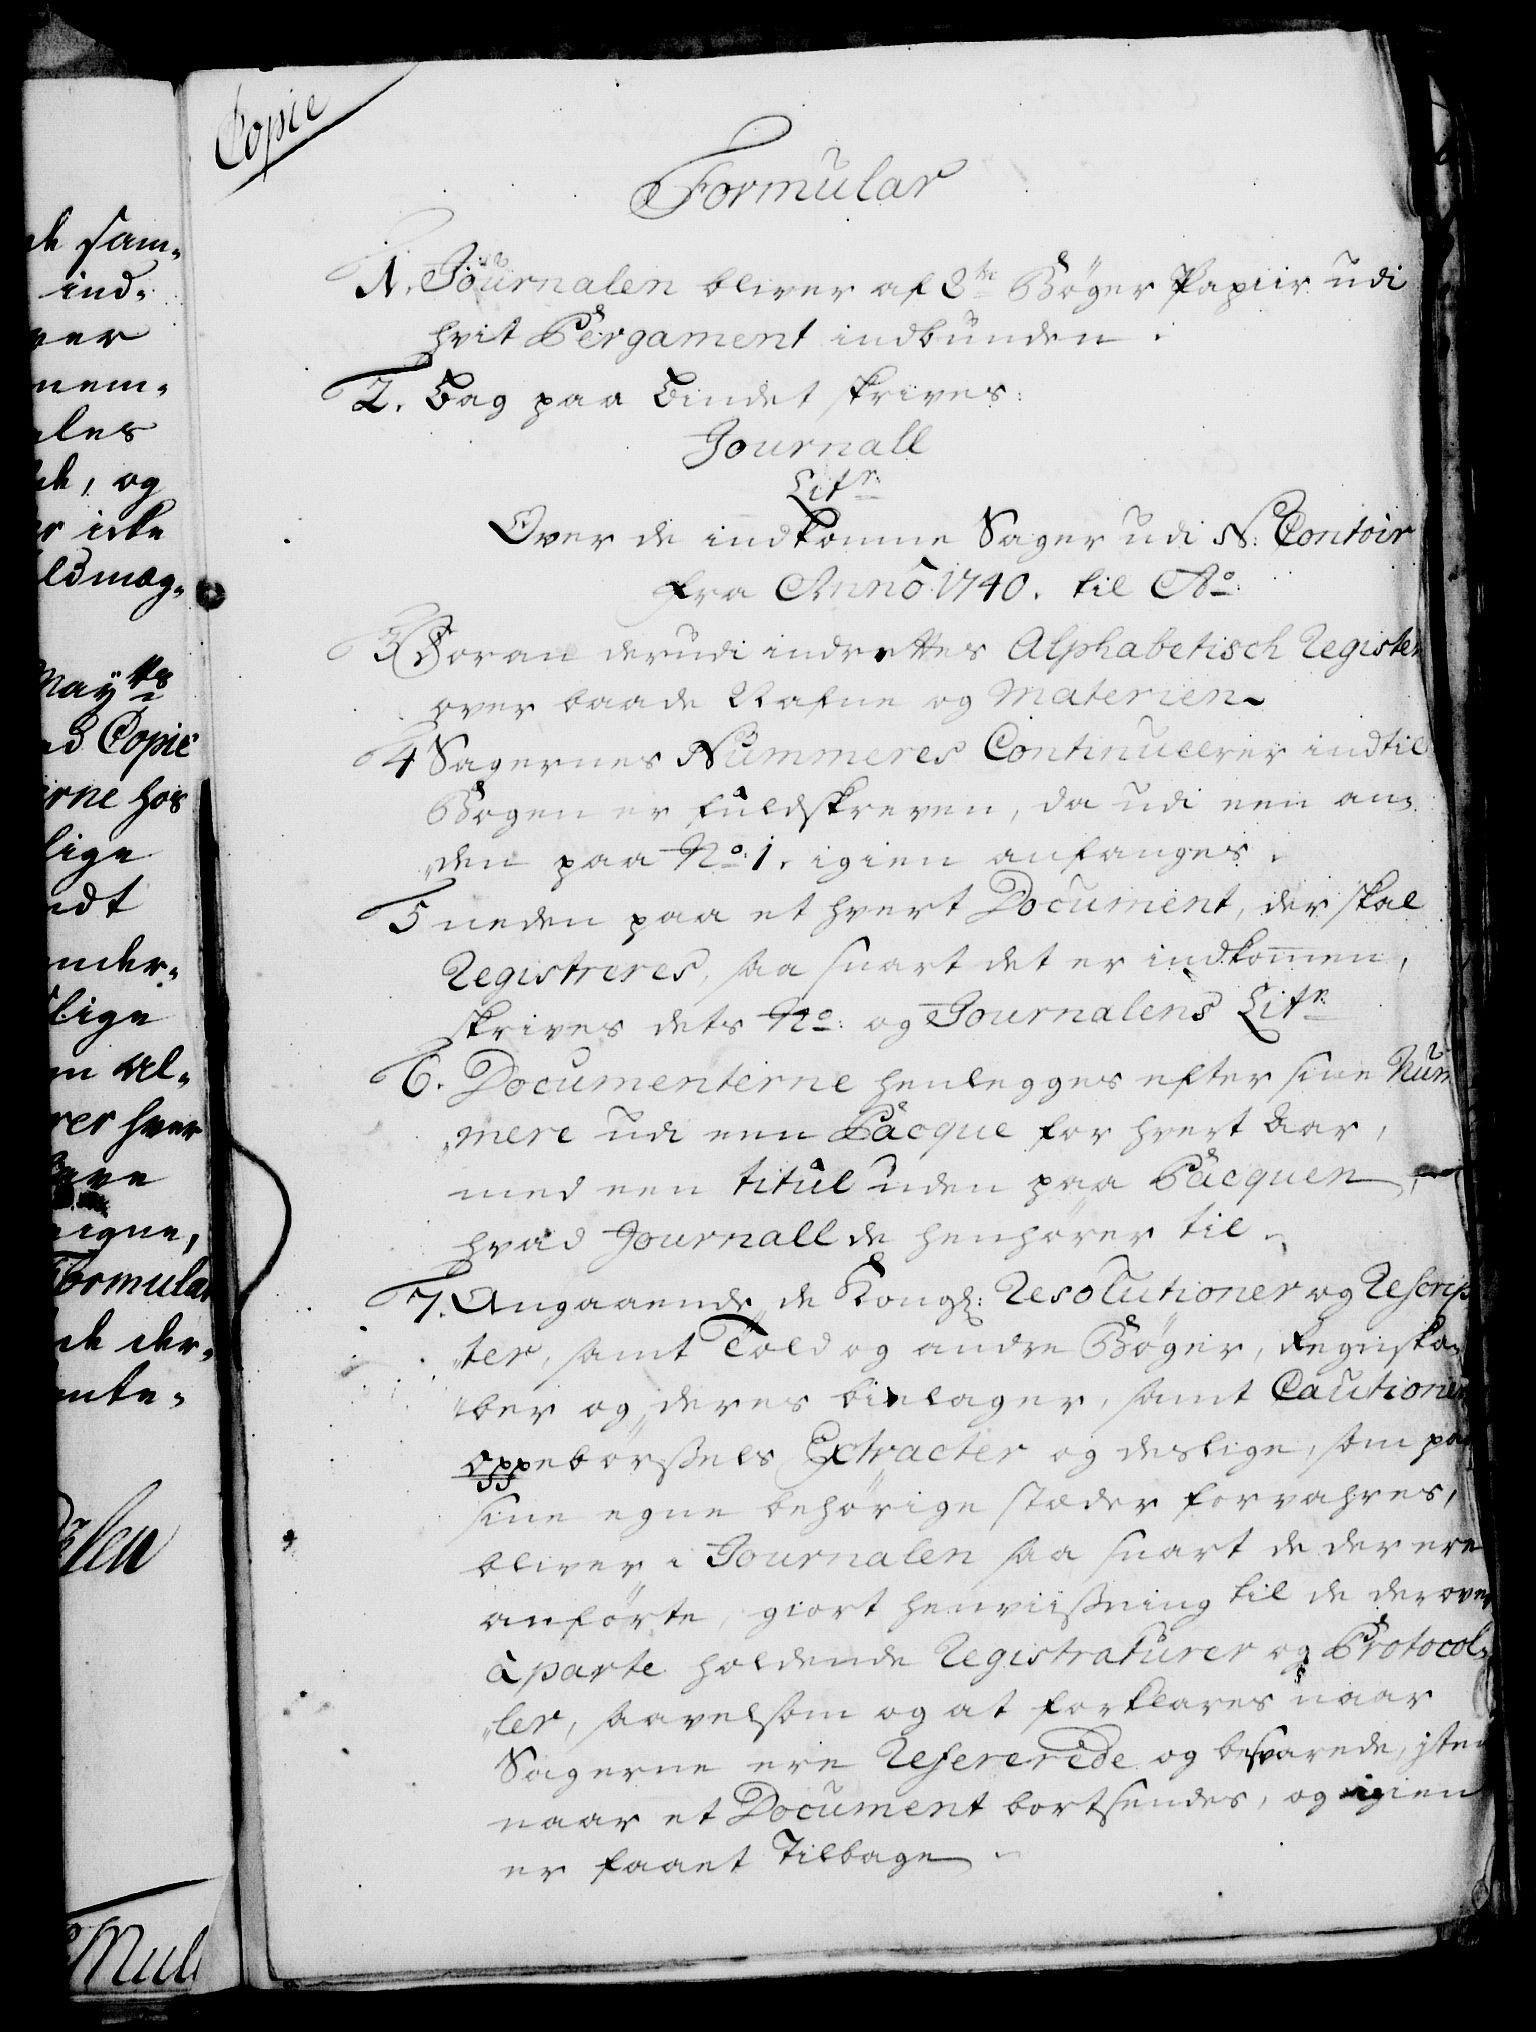 Copie
Formular
1. Journalen bliver af 8te Bøger Papiir udi
hvit Pergament indbunden.
2. Bag paa Bindet skrives:
Journall
Litr:
Over de indkomne Sager udi N: Contoir
fra Anno 1740. til Ao:
3 Foran derudi indrettes Alphabetisch Register
over baade Nafne og Materien.
4 Sagernes Nummeres Continuerer indtil
Bogen er fuldskreven, da udi een an-
den paa No: 1. igien anfanges.
5 neden paa et hvert Document, der skal
Registreres, saa snart det er indkommen,
skrives dets No: og Journalens Litr:
6. Documenterne henlegges efter sine Num
mere udi een Pacque for hvert Aar,
med een titul uden paa Pacquen,
hvad Journall de henhører til.
7. Angaaende de Kongl: Resolutioner og Rescrip
ter, samt Told og andre Bøger, Regnska-
ber og deres bielager, samt Cautioner
oppebørsels Extracter og deslige, som paa
sine egne behörige stæder forvahres,
bliver i Journalen saa snart de der ere
anförte, giort henviisning til de derover
à parte holdende Registraturer og Protocol-
ler, saavelsom og at forklares naar
Sagerne ere Refererede og besvarede, item
naar et Document bortsendes, og igien
er faaet Tilbage
de sam-
ind-
ver
nem-
ales
de, og
er icke
ldmæg-
Maytts
ed Copie
erne hos
lige
ndt
nder-
lige
en Al-
rer hver
have
eigne,
Formular
de der-
ente-